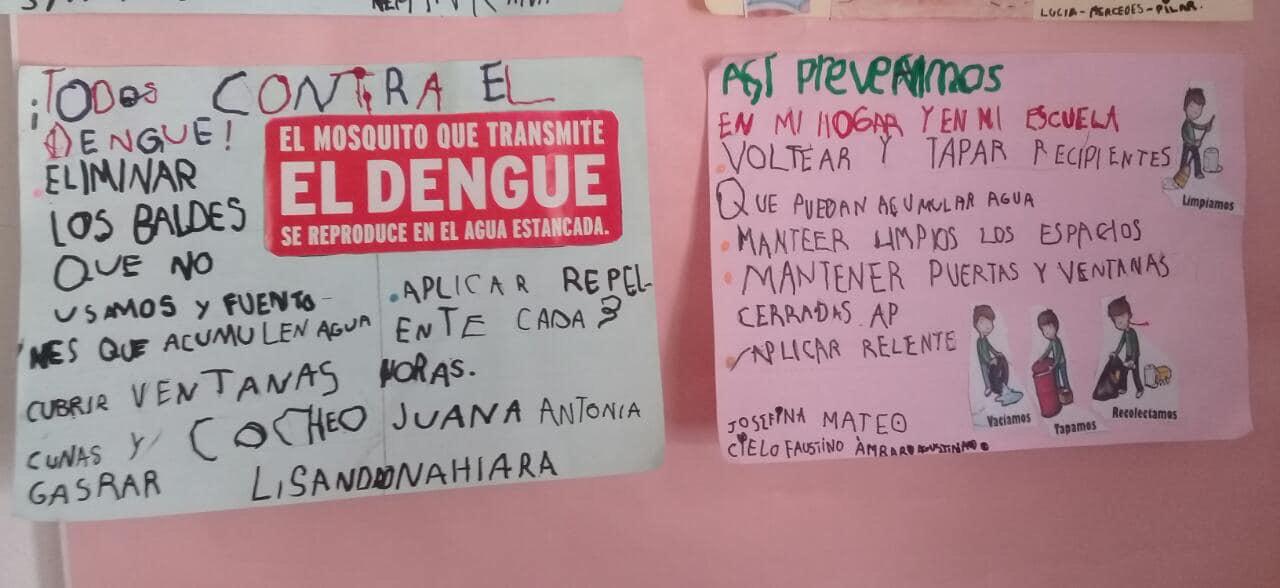 LUCIA-MERCEDES-PILAR.
¡TODOS CONTRA EL
DENGUE!
ELIMINAR
LOS BALDES
QUE NO
USAMOS Y FUENTO-
NES QUE ACUMULEN AGUA
CUBRIR VENTANAS
CUNAS Y COCHEO
GASRAR
EL MOSQUITO QUE TRANSMITE
EL DENGUE
SE REPRODUCE EN EL AGUA ESTANCADA.
.APLICAR REPEL-
ENTE CADA 3
HORAS.
JUANA ANTONIA
LISANDONAHIARA
ASÍ PREVENIMOS
EN MI HOGAR Y EN MI ESCUELA
.VOLTEAR Y TAPAR RECIPIENTES
QUE PUEDAN ACUMULAR AGUA
• MANTEER LIMPIOS LOS ESPACIOS
• MANTENER PUERTAS Y VENTANAS
CERRADAS AP
APLICAR RELENTE
Limpiamos
Vaciamos
Tapamos
Recolectamos
JOSEFINA MATEO
CIELO FAUSTINO